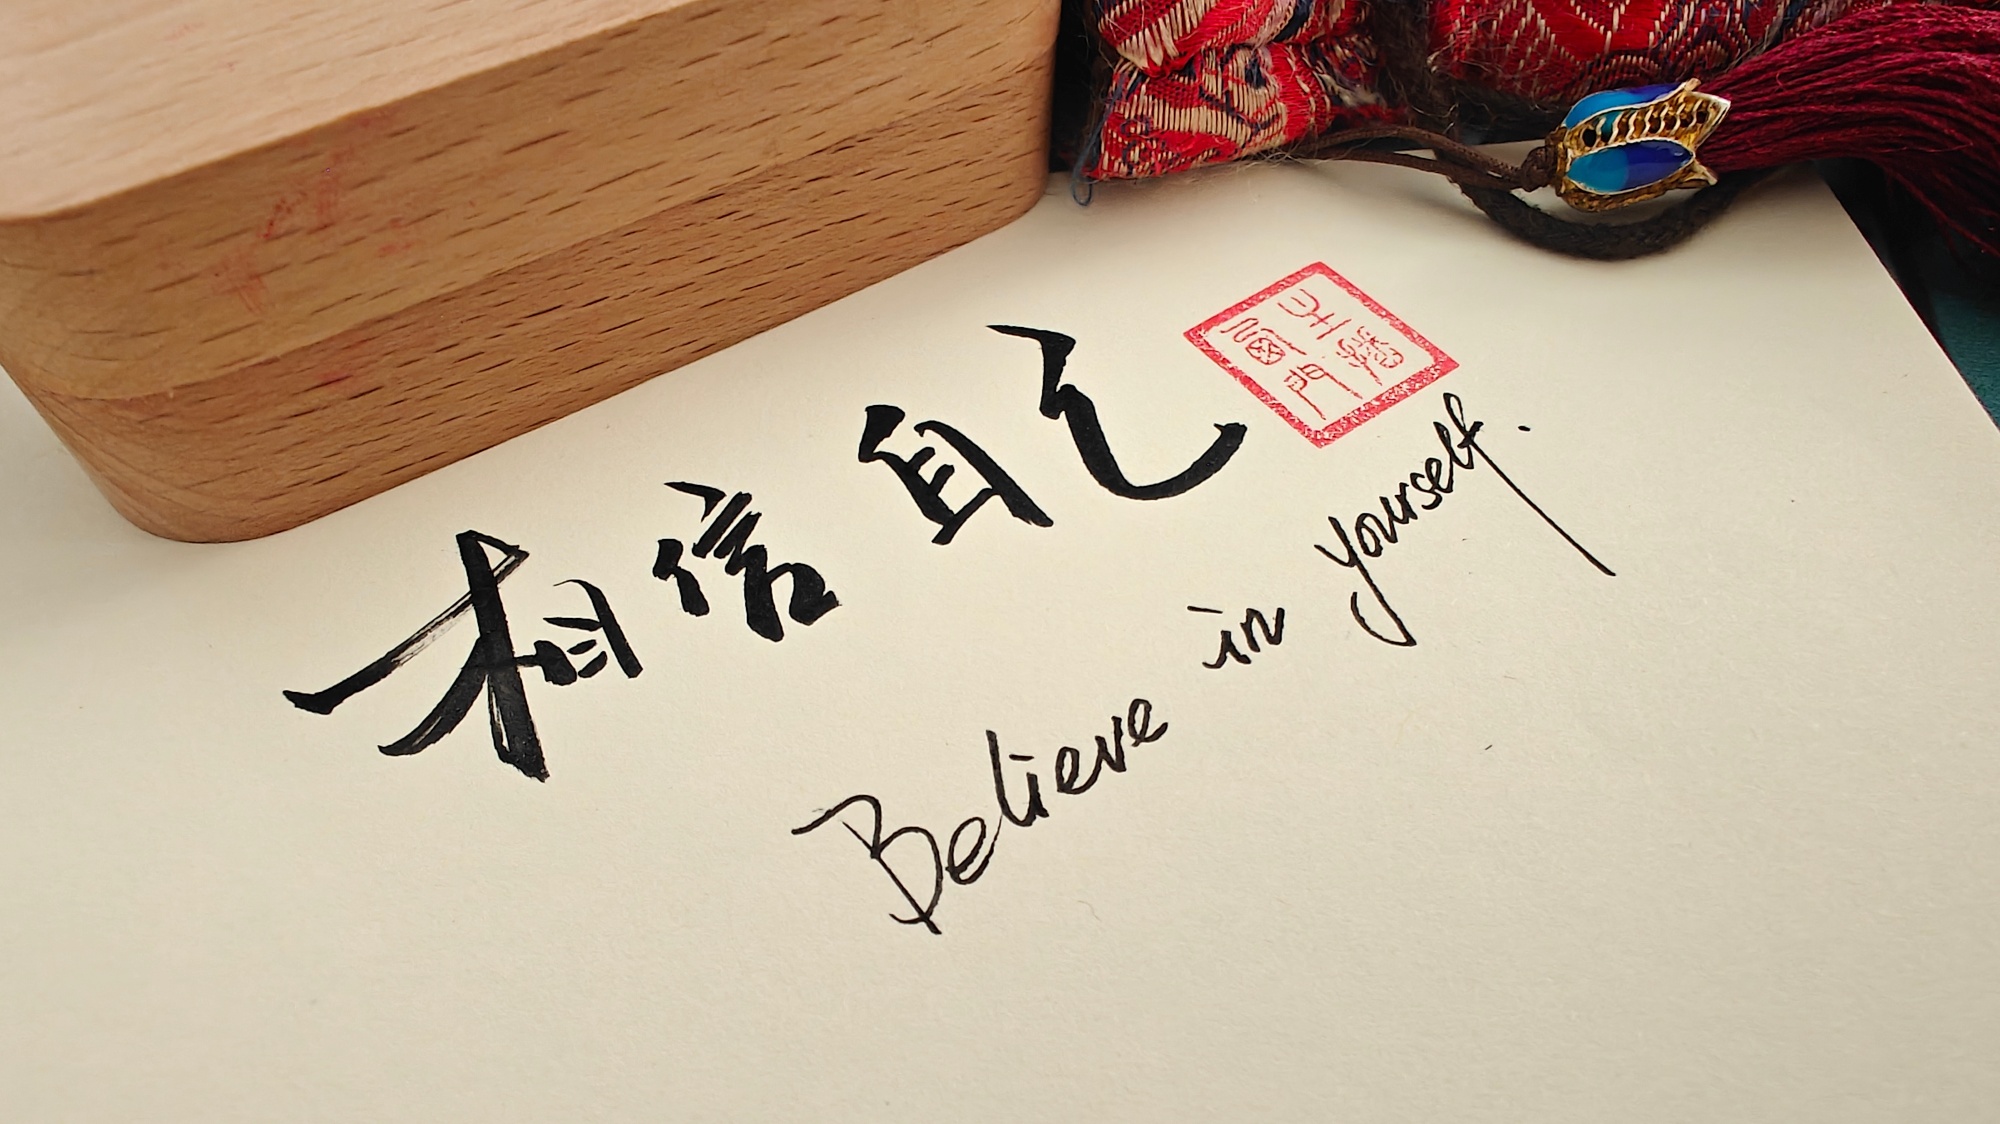 相信自己
Believe in yourself.